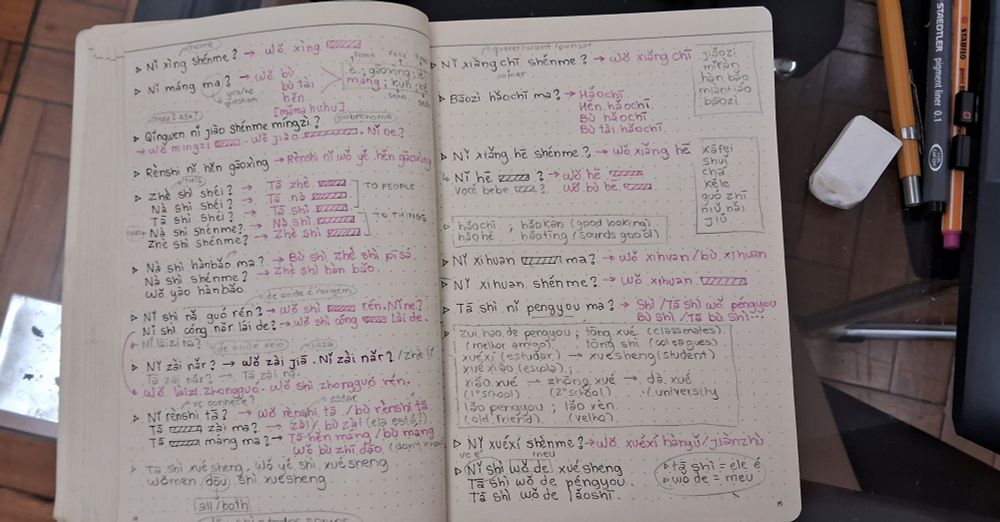 (nome)
▷ Nǐ xìng shénme? → Wǒ xìng
▷ Nǐ máng ma? → Wǒ bù
bù tài
hěn
[mǎma huhu]
máng
gāoxìng
yes/no question
fome
▷ Qǐngwen nǐ jiào shénme míngzì.
sobrenome
→ Wǒ mingzi . Wǒ jiào . Nǐ ne?
▷ Rènshi nǐ hěn gāoxìng → Rènshi nǐ wǒ yě hěn gāoxìng
THIS
▷ Zhè shì shéi? → Tā zhè
Nà shì shéi? → Tā nà
Tā shì shéi? → Tā shì
TO PEOPLE
Nà shì shénme? → Nà shì
Zhè shì shénme? → Zhè shì
TO THINGS
▷ Nà shì hànbǎo ma? → Bù shì zhè shì pī sà
Nà shì shénme? → Zhè shì hàn bǎo
Wǒ yào hànbǎo
de onde é/origem
▷ Nǐ shì nǎ guó rén? → Wǒ shì rén. Nǐ ne?
Nǐ shì cóng nǎr lái de? → Wǒ shì cóng lái de.
+ Nǐ láizì
de onde veio
casa
▷ Nǐ zài nǎr? → Wǒ zài jiā. Nǐ zài nǎr? / zhè lǐ
Tā zài nǎr? → Tā zài nà.
Wǒ láizì zhongguó. Wǒ shì zhongguó rén.
vc conhece?
estar
▷ Nǐ rènshi tā? → Wǒ rènshi tā / bù rènshi tā
Tā zài ma? → zài / bù zài (ela está?)
Tā máng ma? → Tā hěn máng / bù máng
Wǒ bù zhī dào. (don't know)
▷ Tā shì xuésheng. Wǒ yě shì xuésheng
Wǒmen (dōu) shì xuésheng
all/both
querer/want/pensar
▷ Nǐ xiǎng chī shénme? → Wǒ xiǎng chī
comer
jiǎozi
mǐfàn
hàn bǎo
miàntiáo
bāozi
▷ Bāozi hǎochī ma? → Hǎochī
Hěn hǎochī
Bù hǎochī
Bù tài hǎochī
▷ Nǐ xiǎng hē shénme? → Wǒ xiǎng hē
↳ Nǐ hē ? → Wǒ hē
Você bebe ? → Wǒ bù hē
kāfēi
shuǐ
chá
kělè
guǒ zhī
niú nǎi
jiǔ
▷ hǎochī ; hǎokàn (good looking)
hǎohē ; hǎotīng (sounds good)
▷ Nǐ xihuan ma? → Wǒ xihuan / bù xihuan
▷ Nǐ xihuan shénme? → Wǒ xihuan
▷ Tā shì nǐ pengyou ma? → Shì / Tā shì wǒ péngyou
Bù shì / Tā bù shì...
▷ zuì hǎo de pengyou ; tóng xué (classmates)
(melhor amigo) tóng shì (colleagues)
xuéxí (estudar) → xuésheng (student)
xué xiào (escola) ;
xiǎo xué → zhōng xué → dà xué
(1st school) (2nd school) (university
lǎo pengyou ; lǎo rén
(old friend) (velho)
▷ Nǐ xuéxí shénme? → Wǒ xuéxí hànyǔ / jiànzhù
você meu
▷ Nǐ shì wǒ de xuésheng
Tā shì wǒ de péngyou
Tā shì wǒ de lǎoshī
▷ tā shì = ele é
▷ wǒ de = meu
STAEDTLER
pigment liner 0.1
STABILO